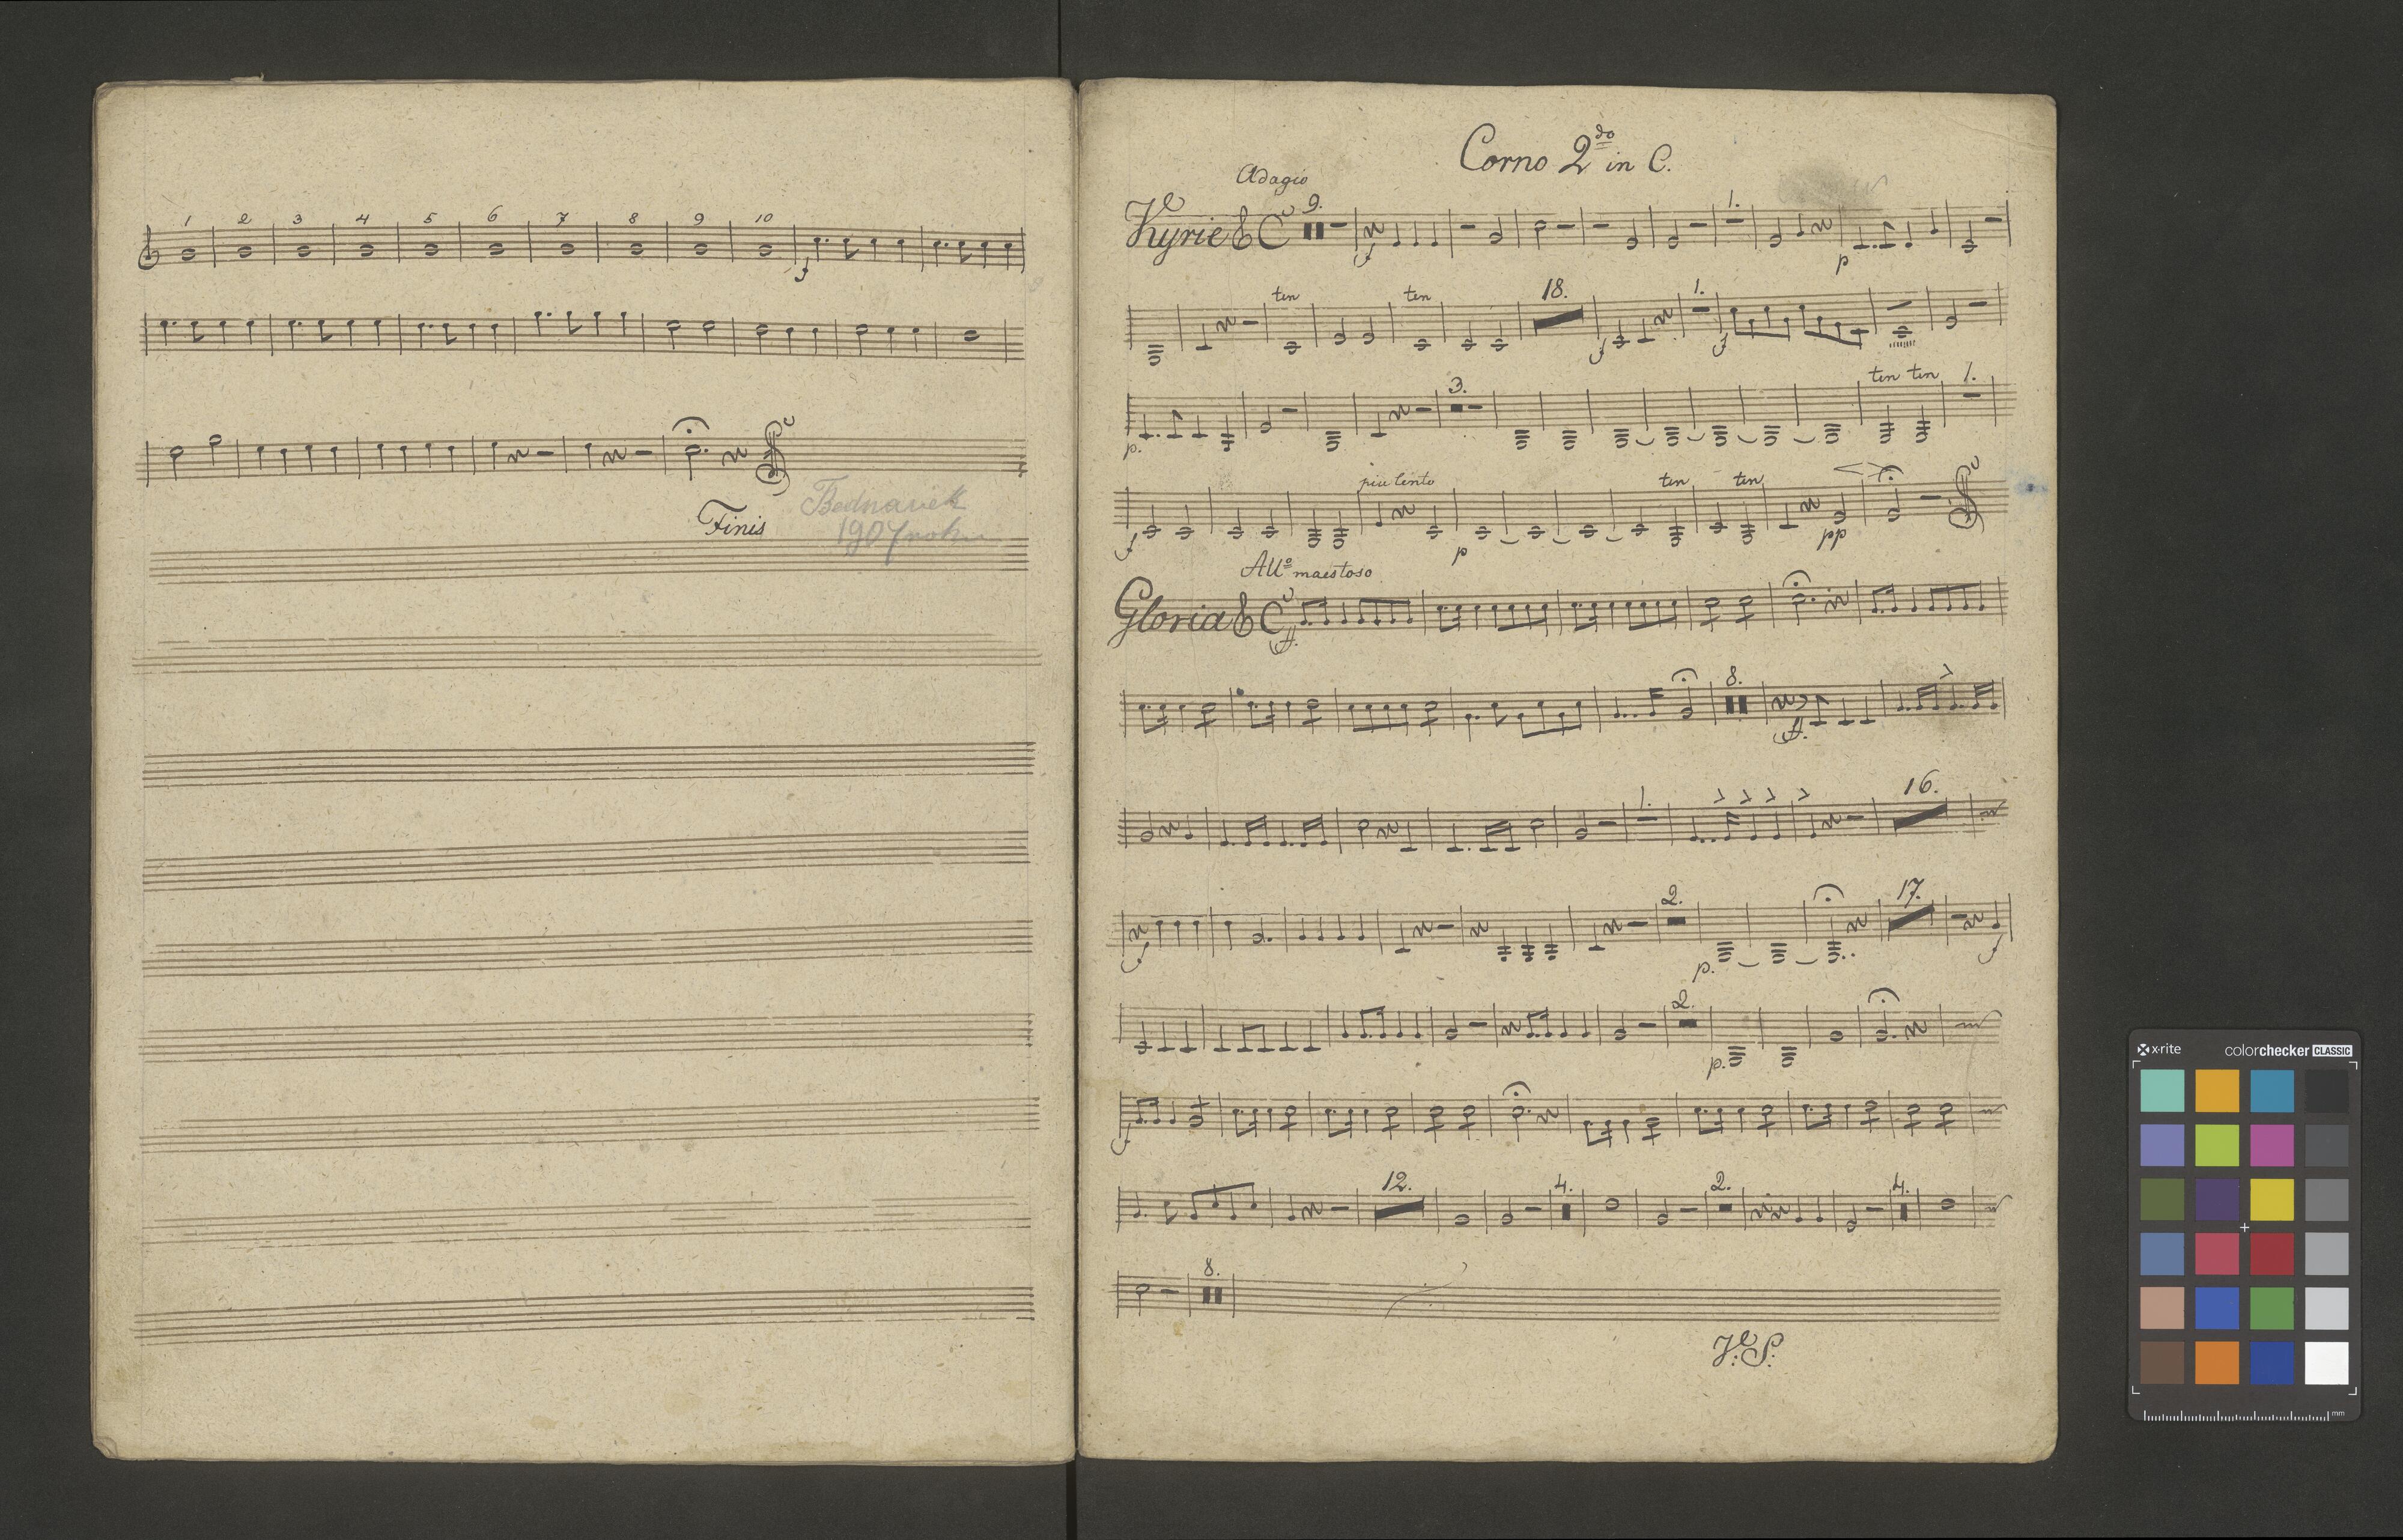 1 2 3 4 5 6 7 8 9 10
f
Finis
1907 roku
Corno 2do in C.
Adagio
Kyrie 9. 1.
f p
ten ten 18. 1.
f f
3. ten ten 1.
p.
piu lento ten ten
f p pp
Allo maestoso
Gloria
ff.
8.
ff.
1. 16.
2. 17.
f p. f
2.
p.
f
12. 4. 2. 4.
8.
V: S:
x-rite colorchecker CLASSIC
mm